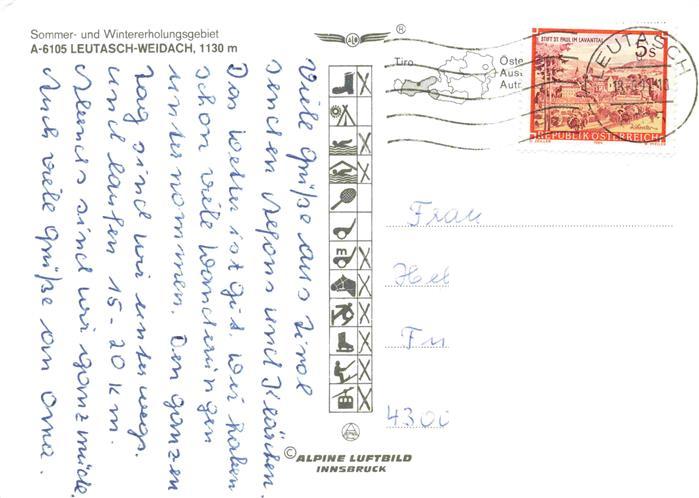 Sommer- und Wintererholungsgebiet
A-6105 LEUTASCH-WEIDACH, 1130 m
ALB
®
Viele Grüße aus Tirol
senden Alfons und Klärchen.
Das Wetter ist gut. Wir haben
schon viele Wanderungen
unternommen. Den ganzen
Tag sind wir unterwegs.
und laufen 15-20 km.
Abends sind wir ganz müde.
Auch viele Grüße an Oma.
Tiro
Öste
Aus
Autr
STIFT ST. PAUL IM LAVANTTAL
5 S
REPUBLIK ÖSTERREICH
LEUTASCH
Frau
Hel
Fu
4300
© ALPINE LUFTBILD
INNSBRUCK